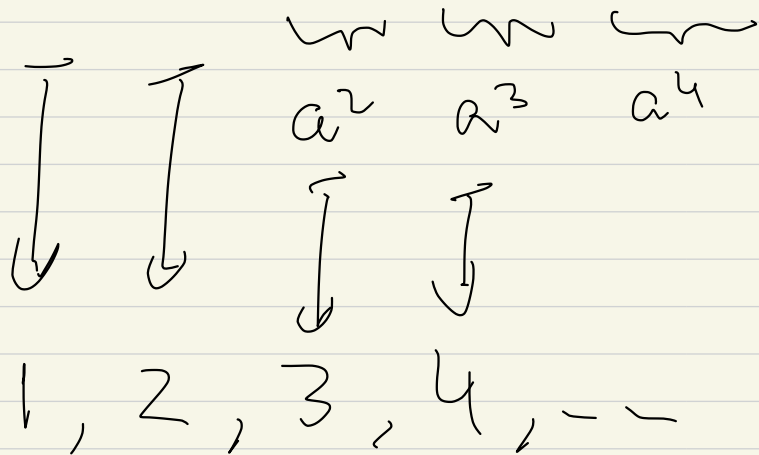 a² a³ a⁴
1, 2, 3, 4, – –